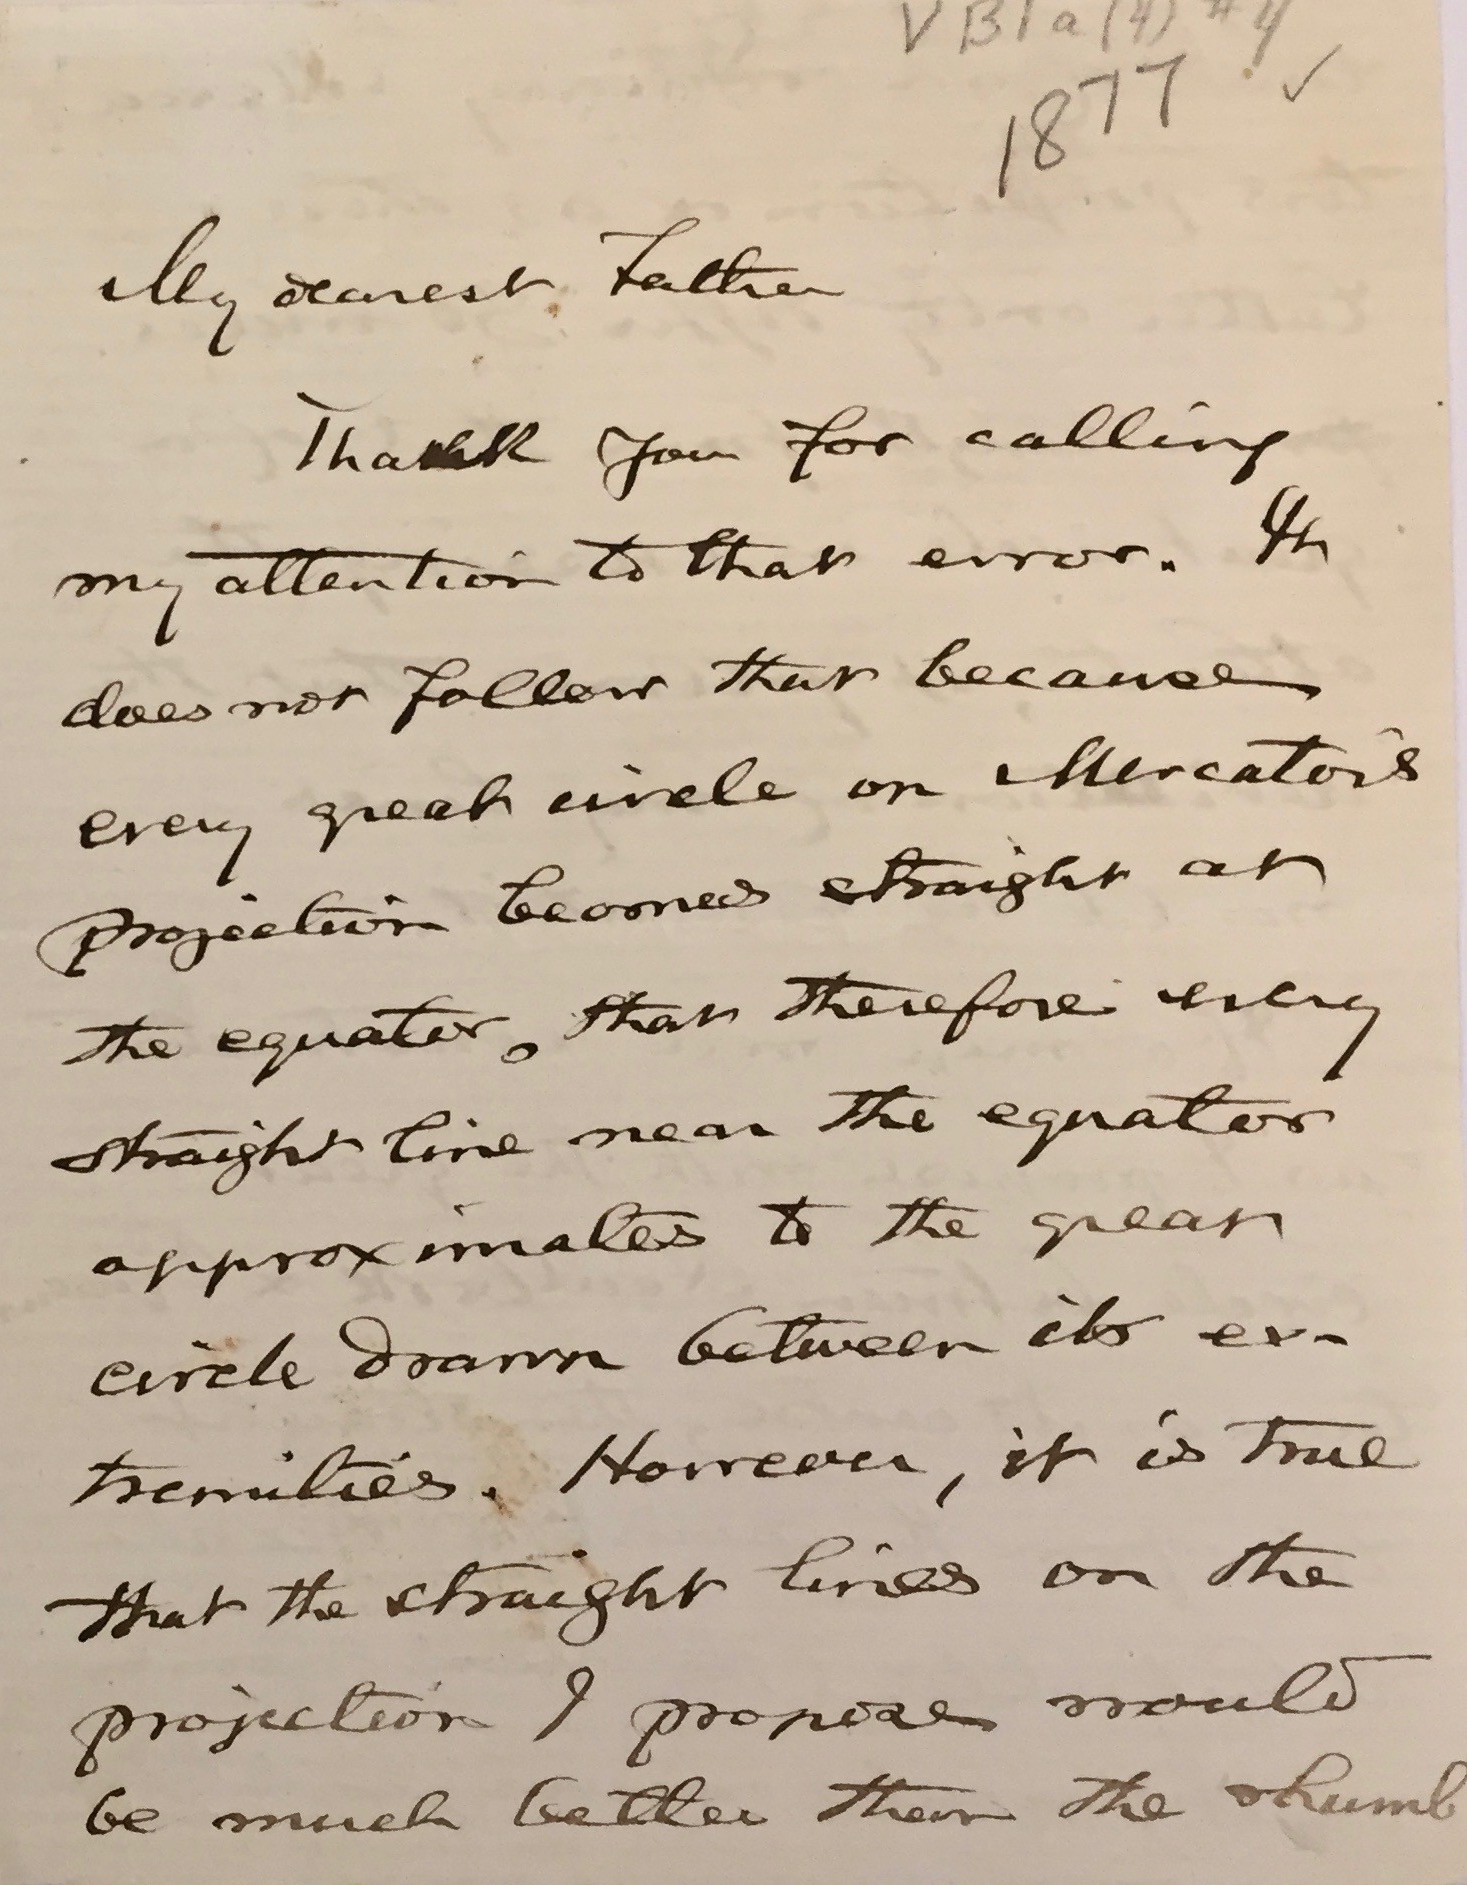 V B1a(4) #4
1877 ✓
My dearest Father
Thank you for calling
my attention to that error. It
does not follow that because
every great circle on Mercator's
projection becomes straight at
the equator, that therefore every
straight line near the equator
approximates to the great
circle drawn between its ex-
tremities. However, it is true
that the straight lines on the
projection I propose would
be much better than the rhumb